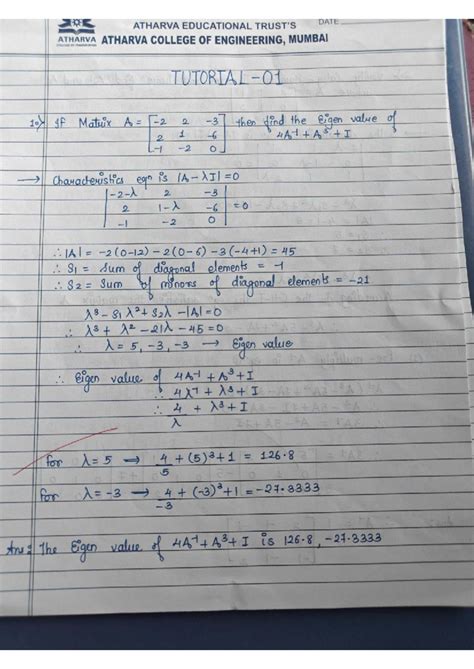 ATHARVA EDUCATIONAL TRUST'S DATE
ATHARVA ATHARVA COLLEGE OF ENGINEERING, MUMBAI
TUTORIAL - 01
If Matrix A = [-2 2 -3 then find the Eigen value of
2 1 -6 4A⁻¹ + A³ + I
-1 -2 0]
→ Characteristics eqn is |A - λI| = 0
|-2-λ 2 -3
2 1-λ -6 = 0
-1 -2 0|
∴ |A| = -2(0-12) - 2(0-6) - 3(-4+1) = 45
∴ S1 = Sum of diagonal elements = -1
∴ S2 = Sum of minors of diagonal elements = -21
λ³ - S1λ² + S2λ - |A| = 0
∴ λ³ + λ² - 21λ - 45 = 0
∴ λ = 5, -3, -3 → Eigen value
∴ Eigen value of 4A⁻¹ + A³ + I
∴ 4λ⁻¹ + λ³ + I
∴ 4/λ + λ³ + I
for λ = 5 → 4/5 + (5)³ + 1 = 126.8
for λ = -3 → 4/-3 + (-3)³ + 1 = -27.3333
Ans: The Eigen value of 4A⁻¹ + A³ + I is 126.8, -27.3333